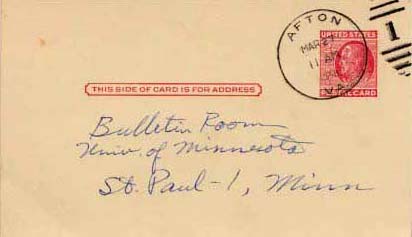 AFTON
MAR 2
11 AM
VA.
1
UNITED STATES
CARD
THIS SIDE OF CARD IS FOR ADDRESS
Bulletin Room
Univ. of Minnesota
St. Paul-1, Minn